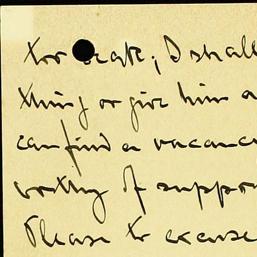 too late; I shall
thing or give him a
can find a vacancy
worthy of suppor
Please to excuse